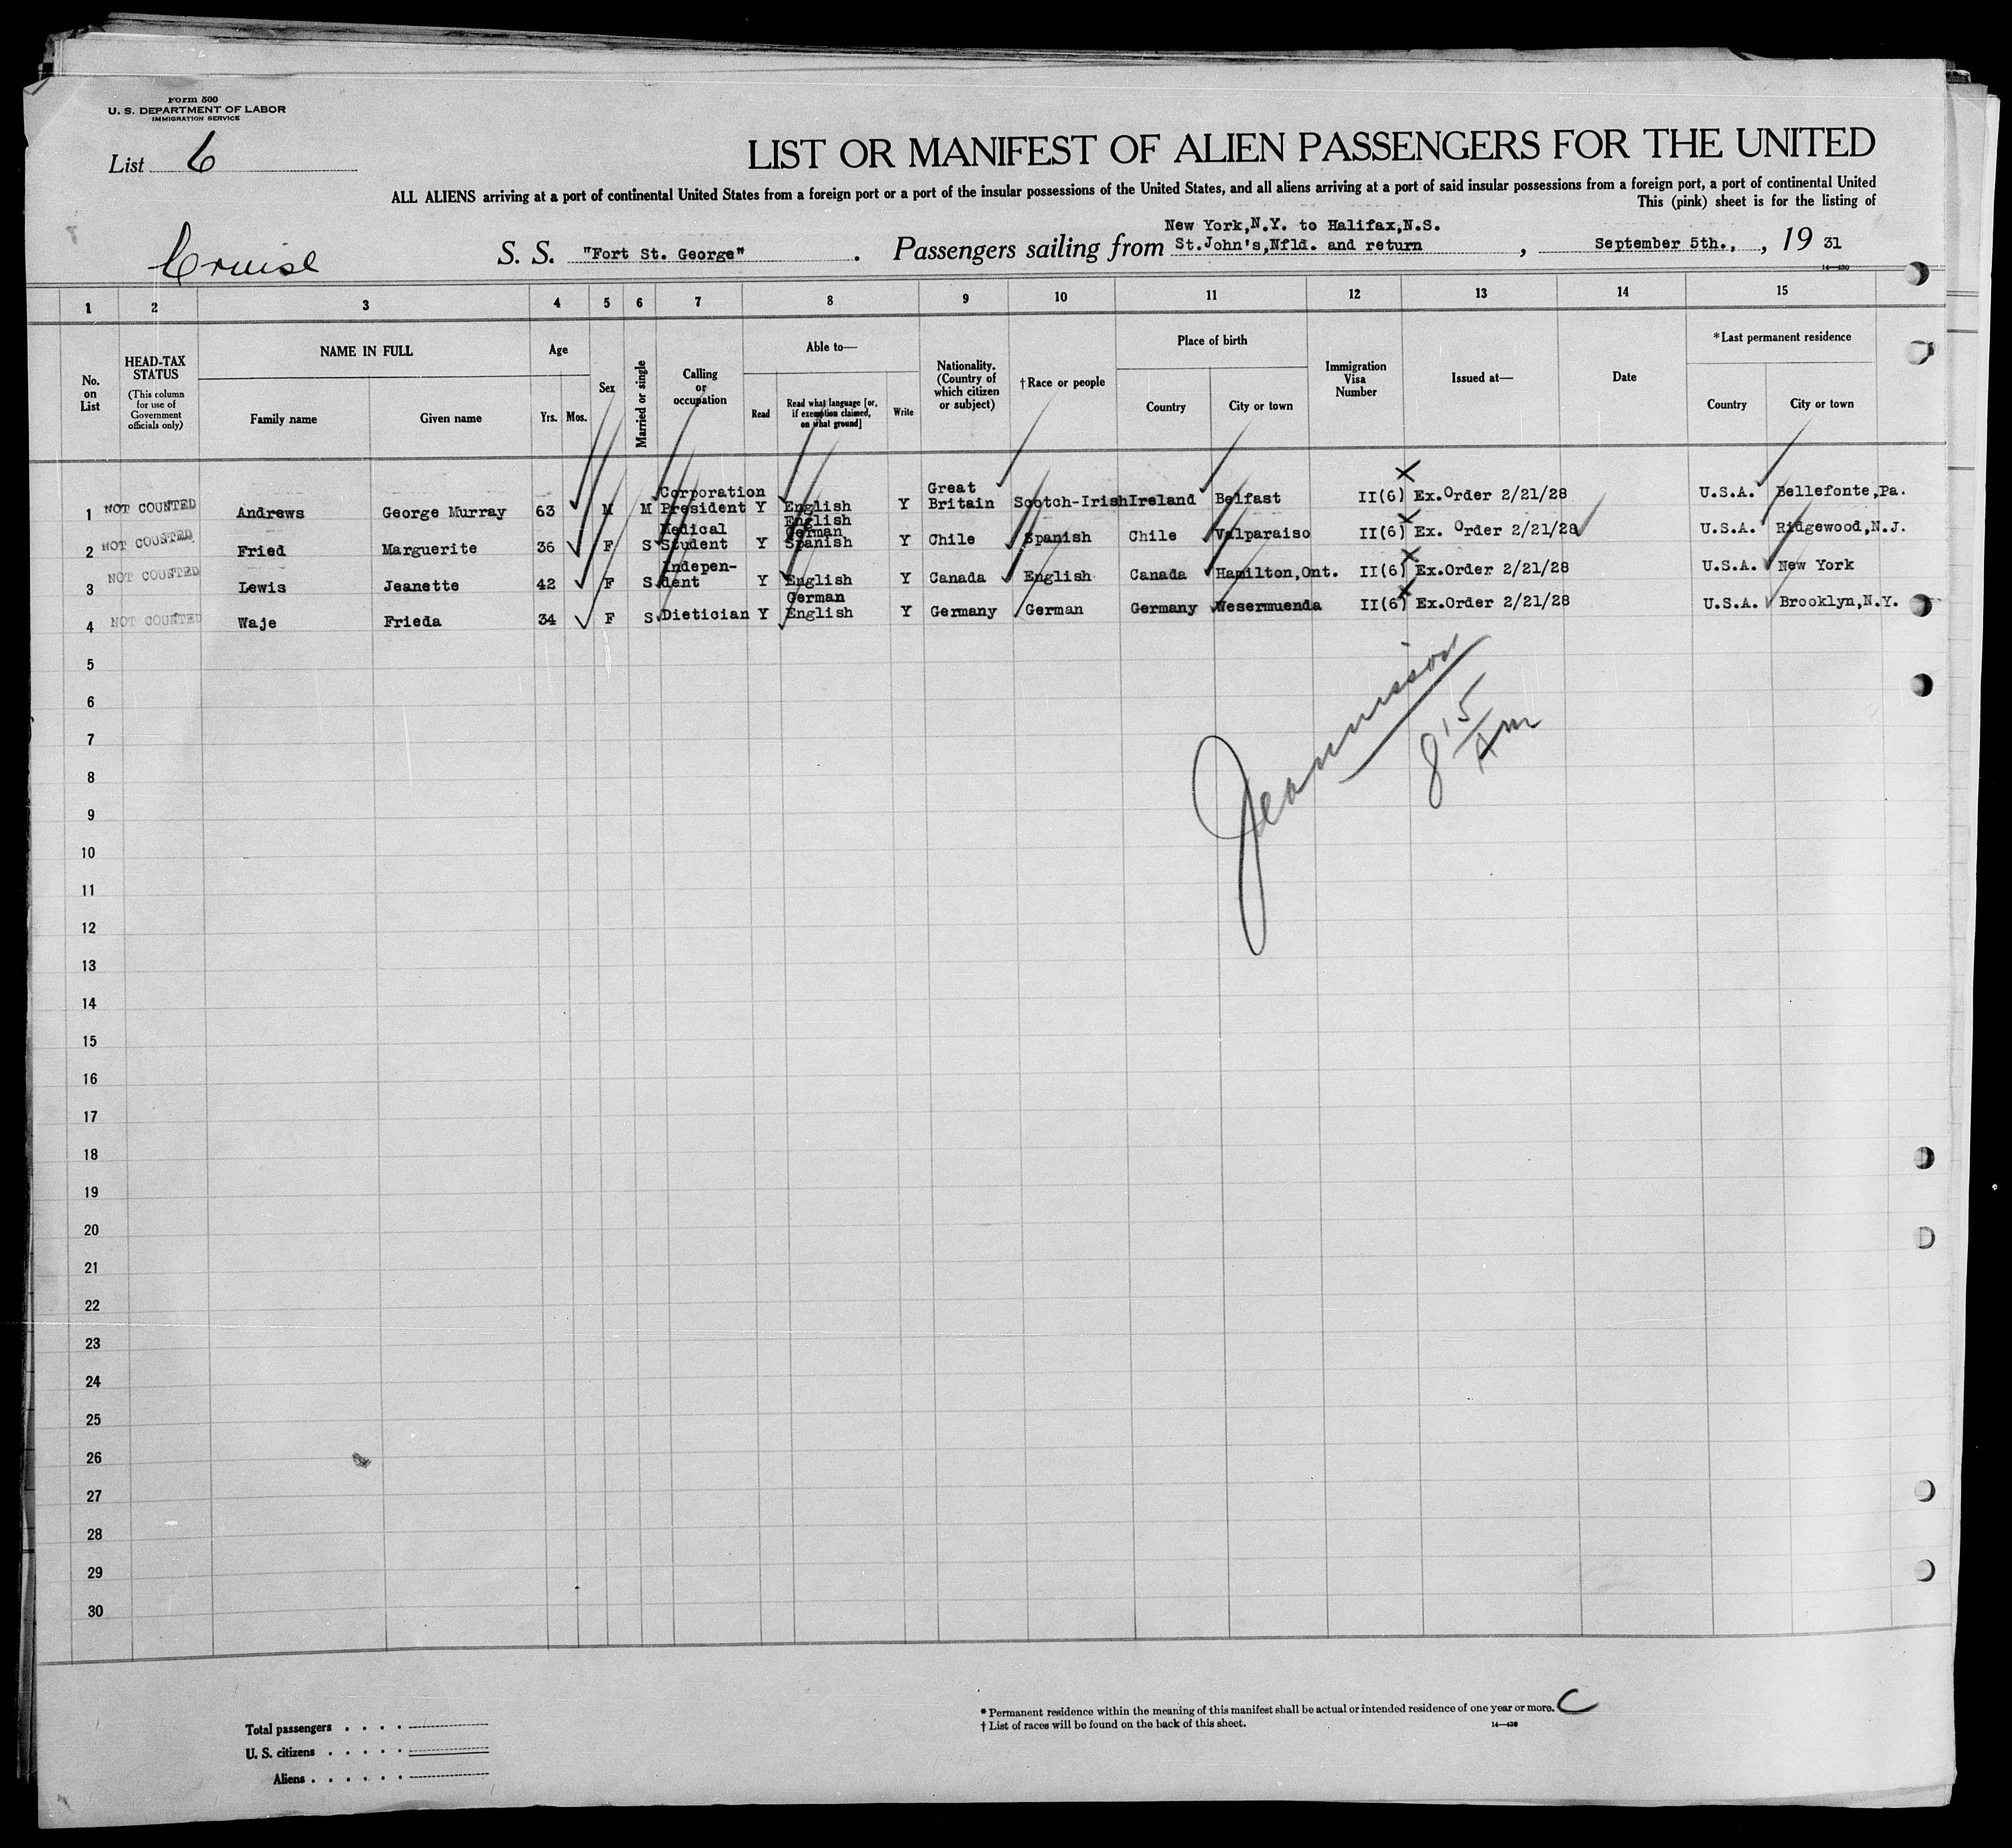 Form 500
U. S. DEPARTMENT OF LABOR
IMMIGRATION SERVICE
List 6
LIST OR MANIFEST OF ALIEN PASSENGERS FOR THE UNITED
ALL ALIENS arriving at a port of continental United States from a foreign port or a port of the insular possessions of the United States, and all aliens arriving at a port of said insular possessions from a foreign port, a port of continental United
This (pink) sheet is for the listing of
Cruise
S. S. "Fort St. George" . Passengers sailing from New York,N.Y. to Halifax,N.S.
St.John's,Nfld. and return , September 5th., , 19 31
14—430
1 2 3 4 5 6 7 8 9 10 11 12 13 14 15
No. on List
HEAD-TAX STATUS
(This column for use of Government officials only)
NAME IN FULL
Family name
Given name
Age
Yrs. Mos.
Sex
Married or single
Calling or occupation
Able to—
Read
Read what language [or, if exemption claimed, on what ground]
Write
Nationality. (Country of which citizen or subject)
† Race or people
Place of birth
Country
City or town
Immigration Visa Number
Issued at—
Date
* Last permanent residence
Country
City or town
1 NOT COUNTED Andrews George Murray 63 M M Corporation President Y English Y Great Britain Scotch-Irish Ireland Belfast II(6) Ex.Order 2/21/28 U.S.A. Bellefonte,Pa.
2 NOT COUNTED Fried Marguerite 36 F S Medical Student Y English German Spanish Y Chile Spanish Chile Valparaiso II(6) Ex. Order 2/21/28 U.S.A. Ridgewood,N.J.
3 NOT COUNTED Lewis Jeanette 42 F S Indepen-dent Y English Y Canada English Canada Hamilton,Ont. II(6) Ex.Order 2/21/28 U.S.A. New York
4 NOT COUNTED Waje Frieda 34 F S Dietician Y German English Y Germany German Germany Wesermuenda II(6) Ex.Order 2/21/28 U.S.A. Brooklyn,N.Y.
5
6
7
8
9
10
11
12
13
14
15
16
17
18
19
20
21
22
23
24
25
26
27
28
29
30
8 15 AM
Total passengers . . . .
U. S. citizens . . . . .
Aliens . . . . . .
* Permanent residence within the meaning of this manifest shall be actual or intended residence of one year or more. C
† List of races will be found on the back of this sheet.
14—430